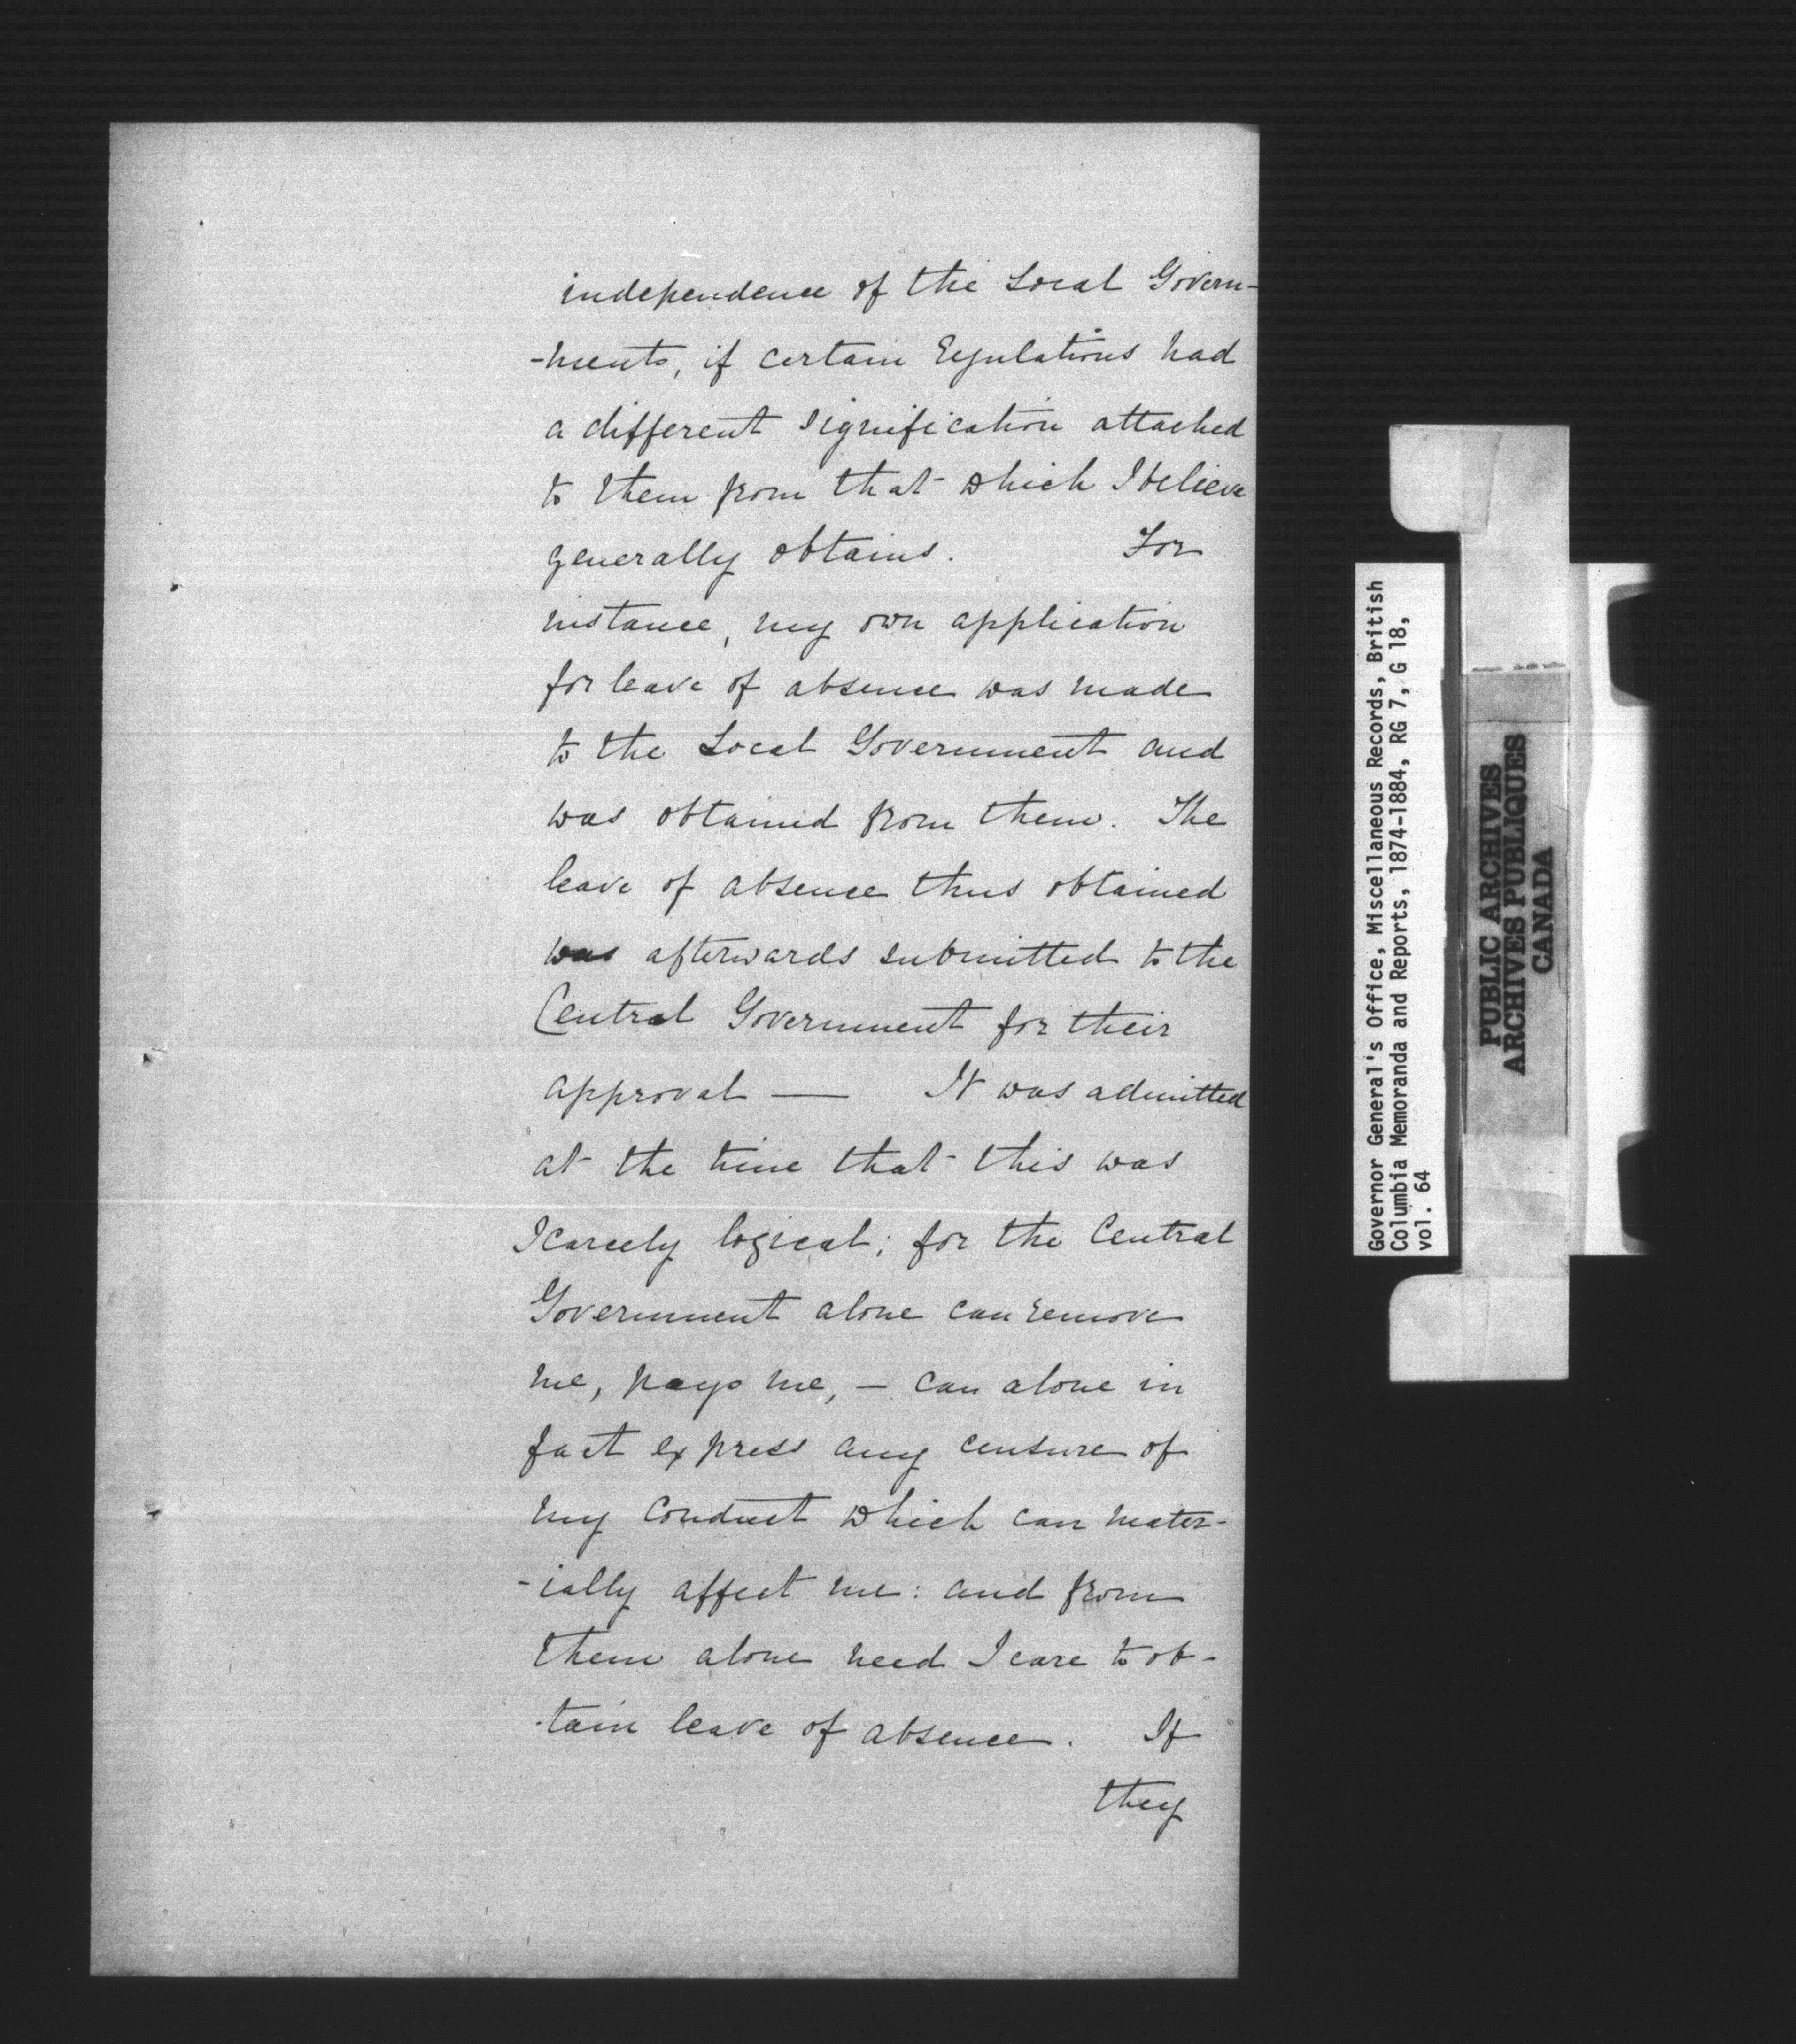 independence of the Local Govern-
-ments, if certain regulations had
a different signification attached
to them from that which I believe
generally obtains. For
instance, my own application
for leave of absence was made
to the Local Government and
was obtained from them. The
leave of absence thus obtained
was afterwards submitted to the
Central Government for their
approval — It was admitted
at the time that this was
scarcely logical; for the Central
Government alone can remove
me, pays me, – can alone in
fact express any censure of
my conduct which can mater-
-ially affect me: and from
them alone need I care to ob-
-tain leave of absence. If
they
Governor General's Office, Miscellaneous Records, British
Columbia Memoranda and Reports, 1874-1884, RG 7, G 18,
vol. 64
PUBLIC ARCHIVES
ARCHIVES PUBLIQUES
CANADA